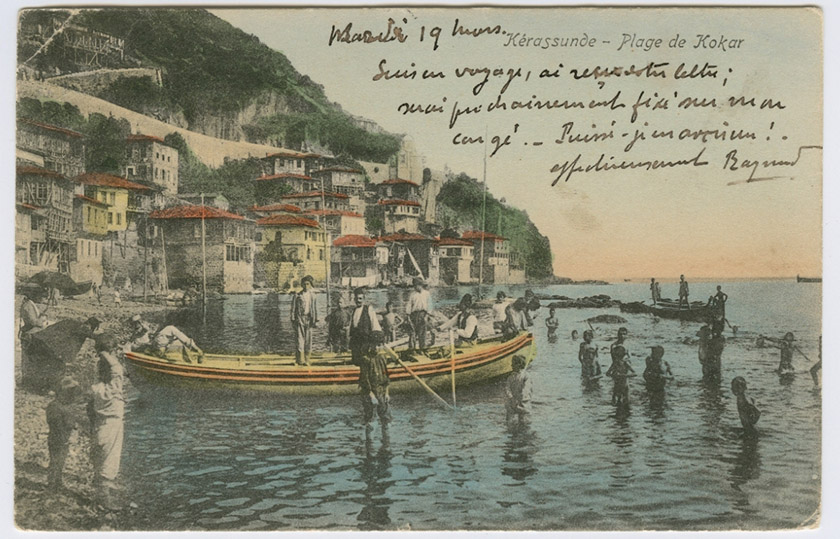 Mardi 19 mars.
Kérassunde - Plage de Kokar
Suis en voyage, ai reçu votre lettre ;
serai prochainement fixé sur mon
congé. - Puissé-je en avoir un ! -
affectueusement